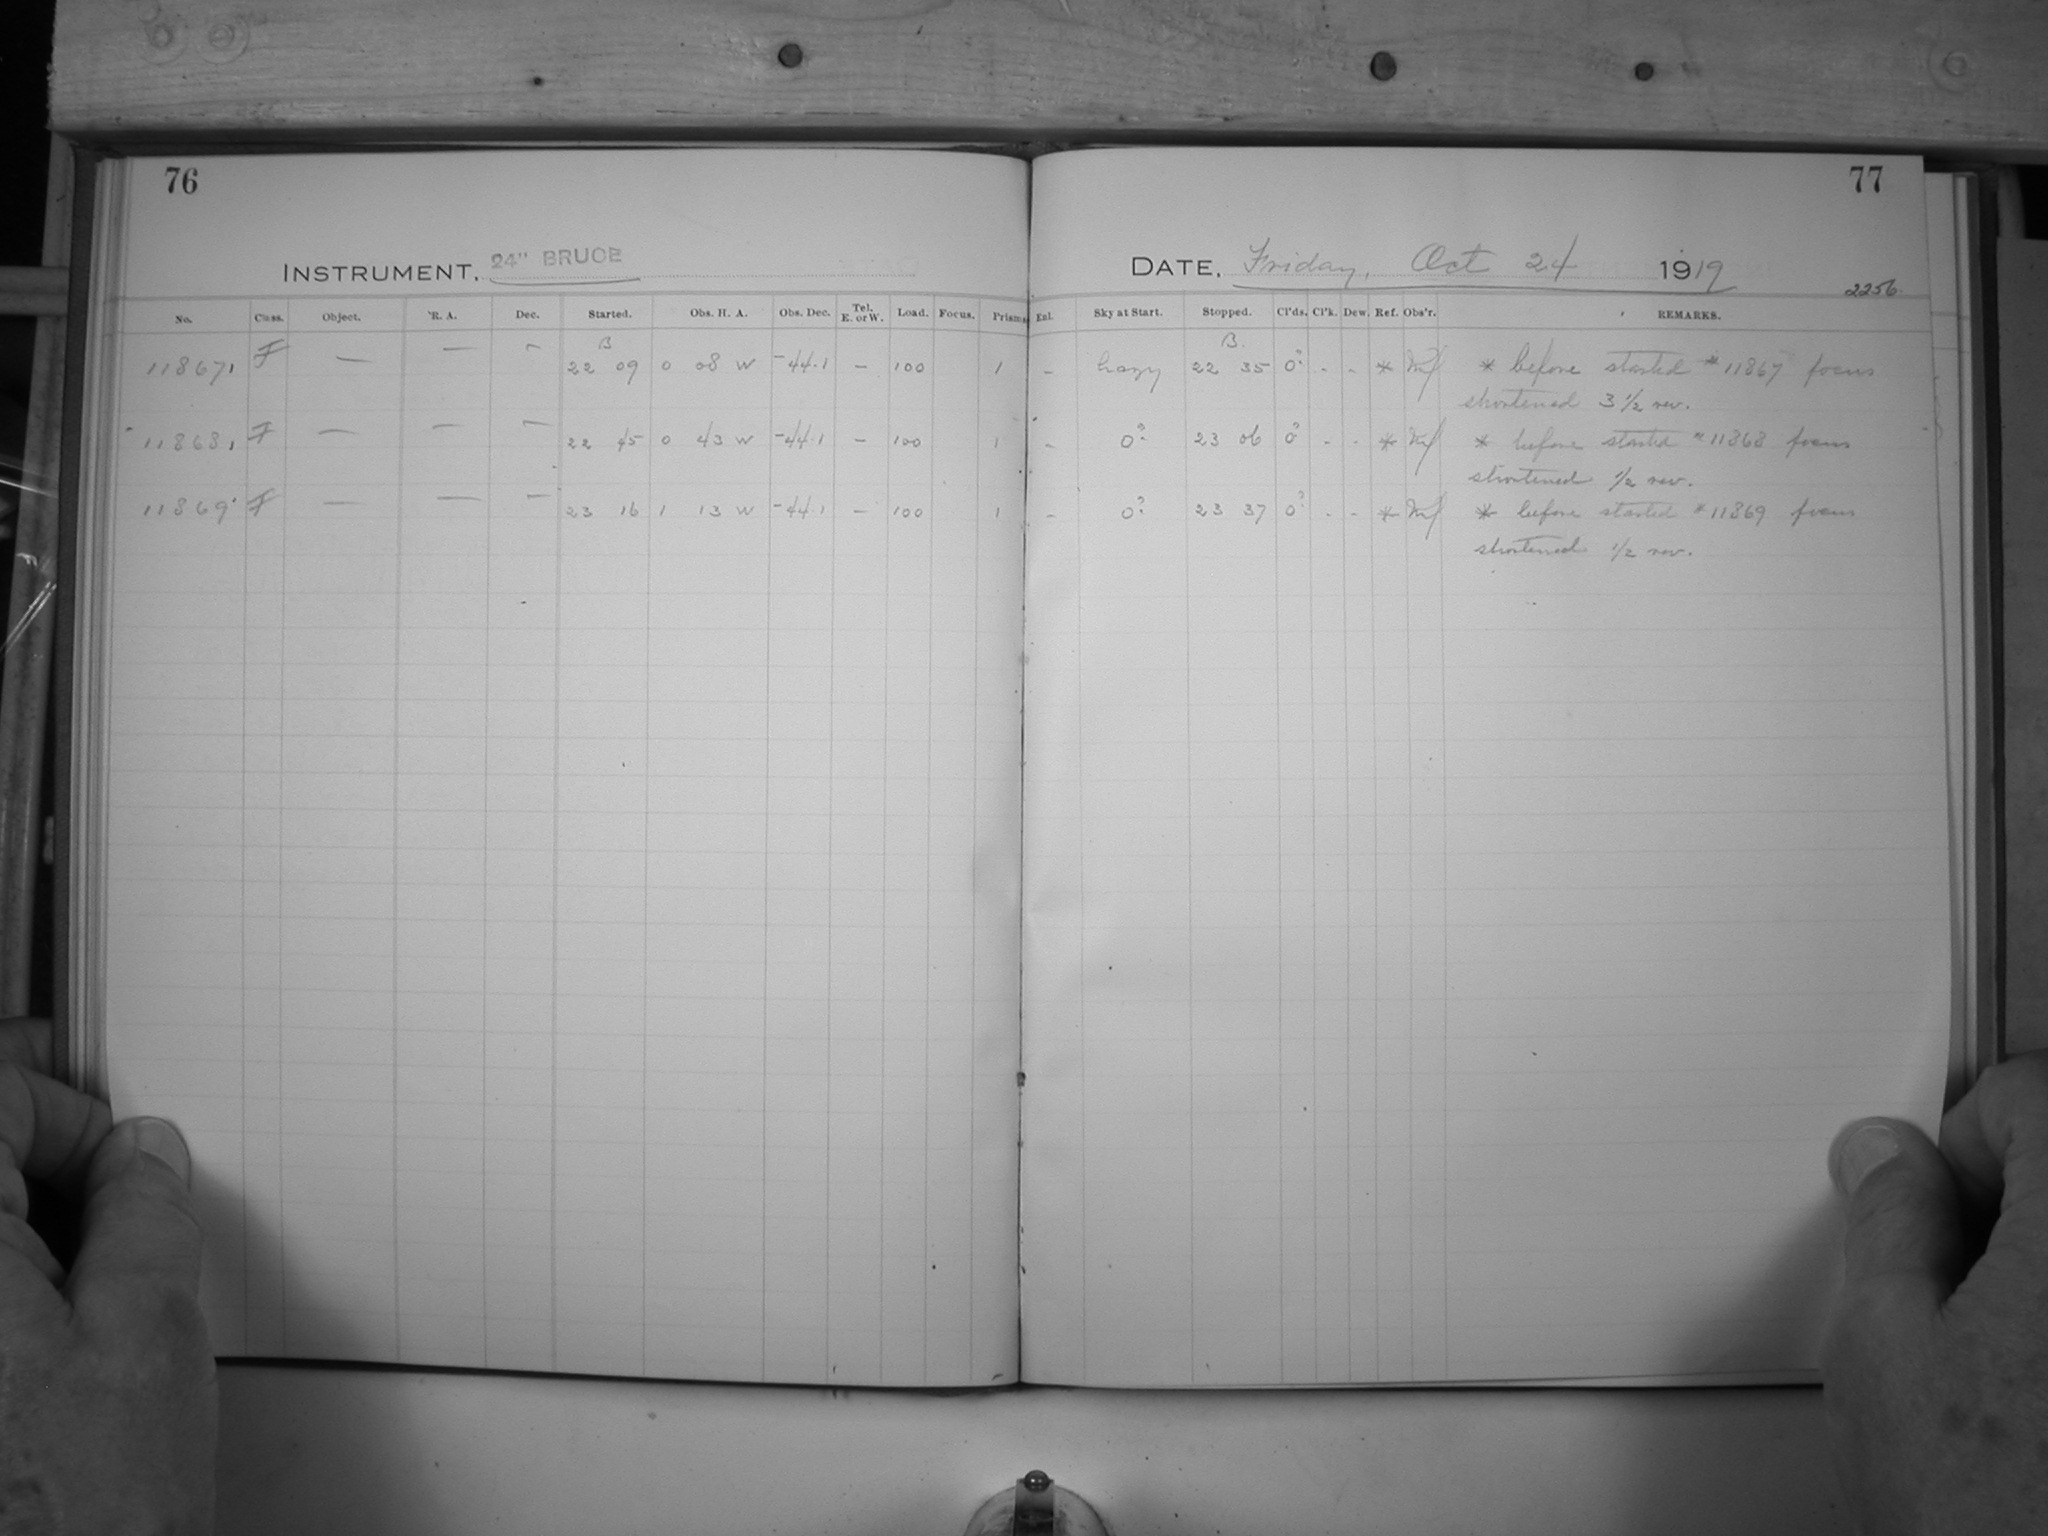 76
77
INSTRUMENT, 24" BRUCE
DATE, Friday, Oct 24 1919
2256
No. Class. Object. R. A. Dec. Started. Obs. H. A. Obs. Dec. Tel. E. or W. Load. Focus. Prisms Exl. Sky at Start. Stopped. Cl'ds. Cl'k. Dew. Ref. Obs'r. REMARKS.
B B.
11867, F — — — 22 09 0 08 W -44.1 — 100 1 - hazy 22 35 0? - - * * before started #11867 focus
shortened 3 1/2 rev.
11868, F — — — 22 45 0 43 W -44.1 — 100 1 - 0? 23 06 0? - - * * before started #11868 focus
shortened 1/2 rev.
11869' F — — — 23 16 1 13 W -44.1 — 100 1 - 0? 23 37 0? - - * * before started #11869 focus
shortened 1/2 rev.